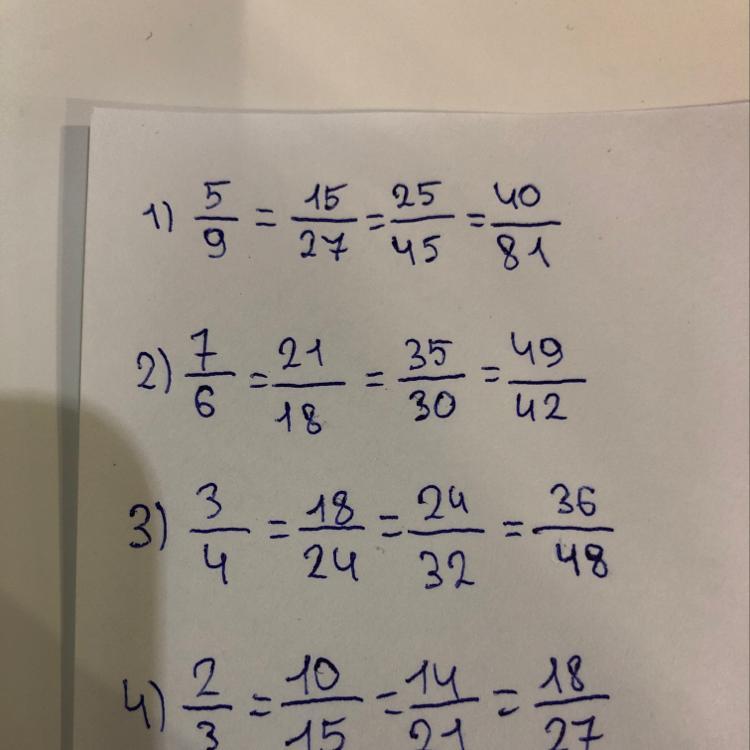 1) 5/9 = 15/27 = 25/45 = 40/81
2) 7/6 = 21/18 = 35/30 = 49/42
3) 3/4 = 18/24 = 24/32 = 36/48
4) 2/3 = 10/15 = 14/21 = 18/27